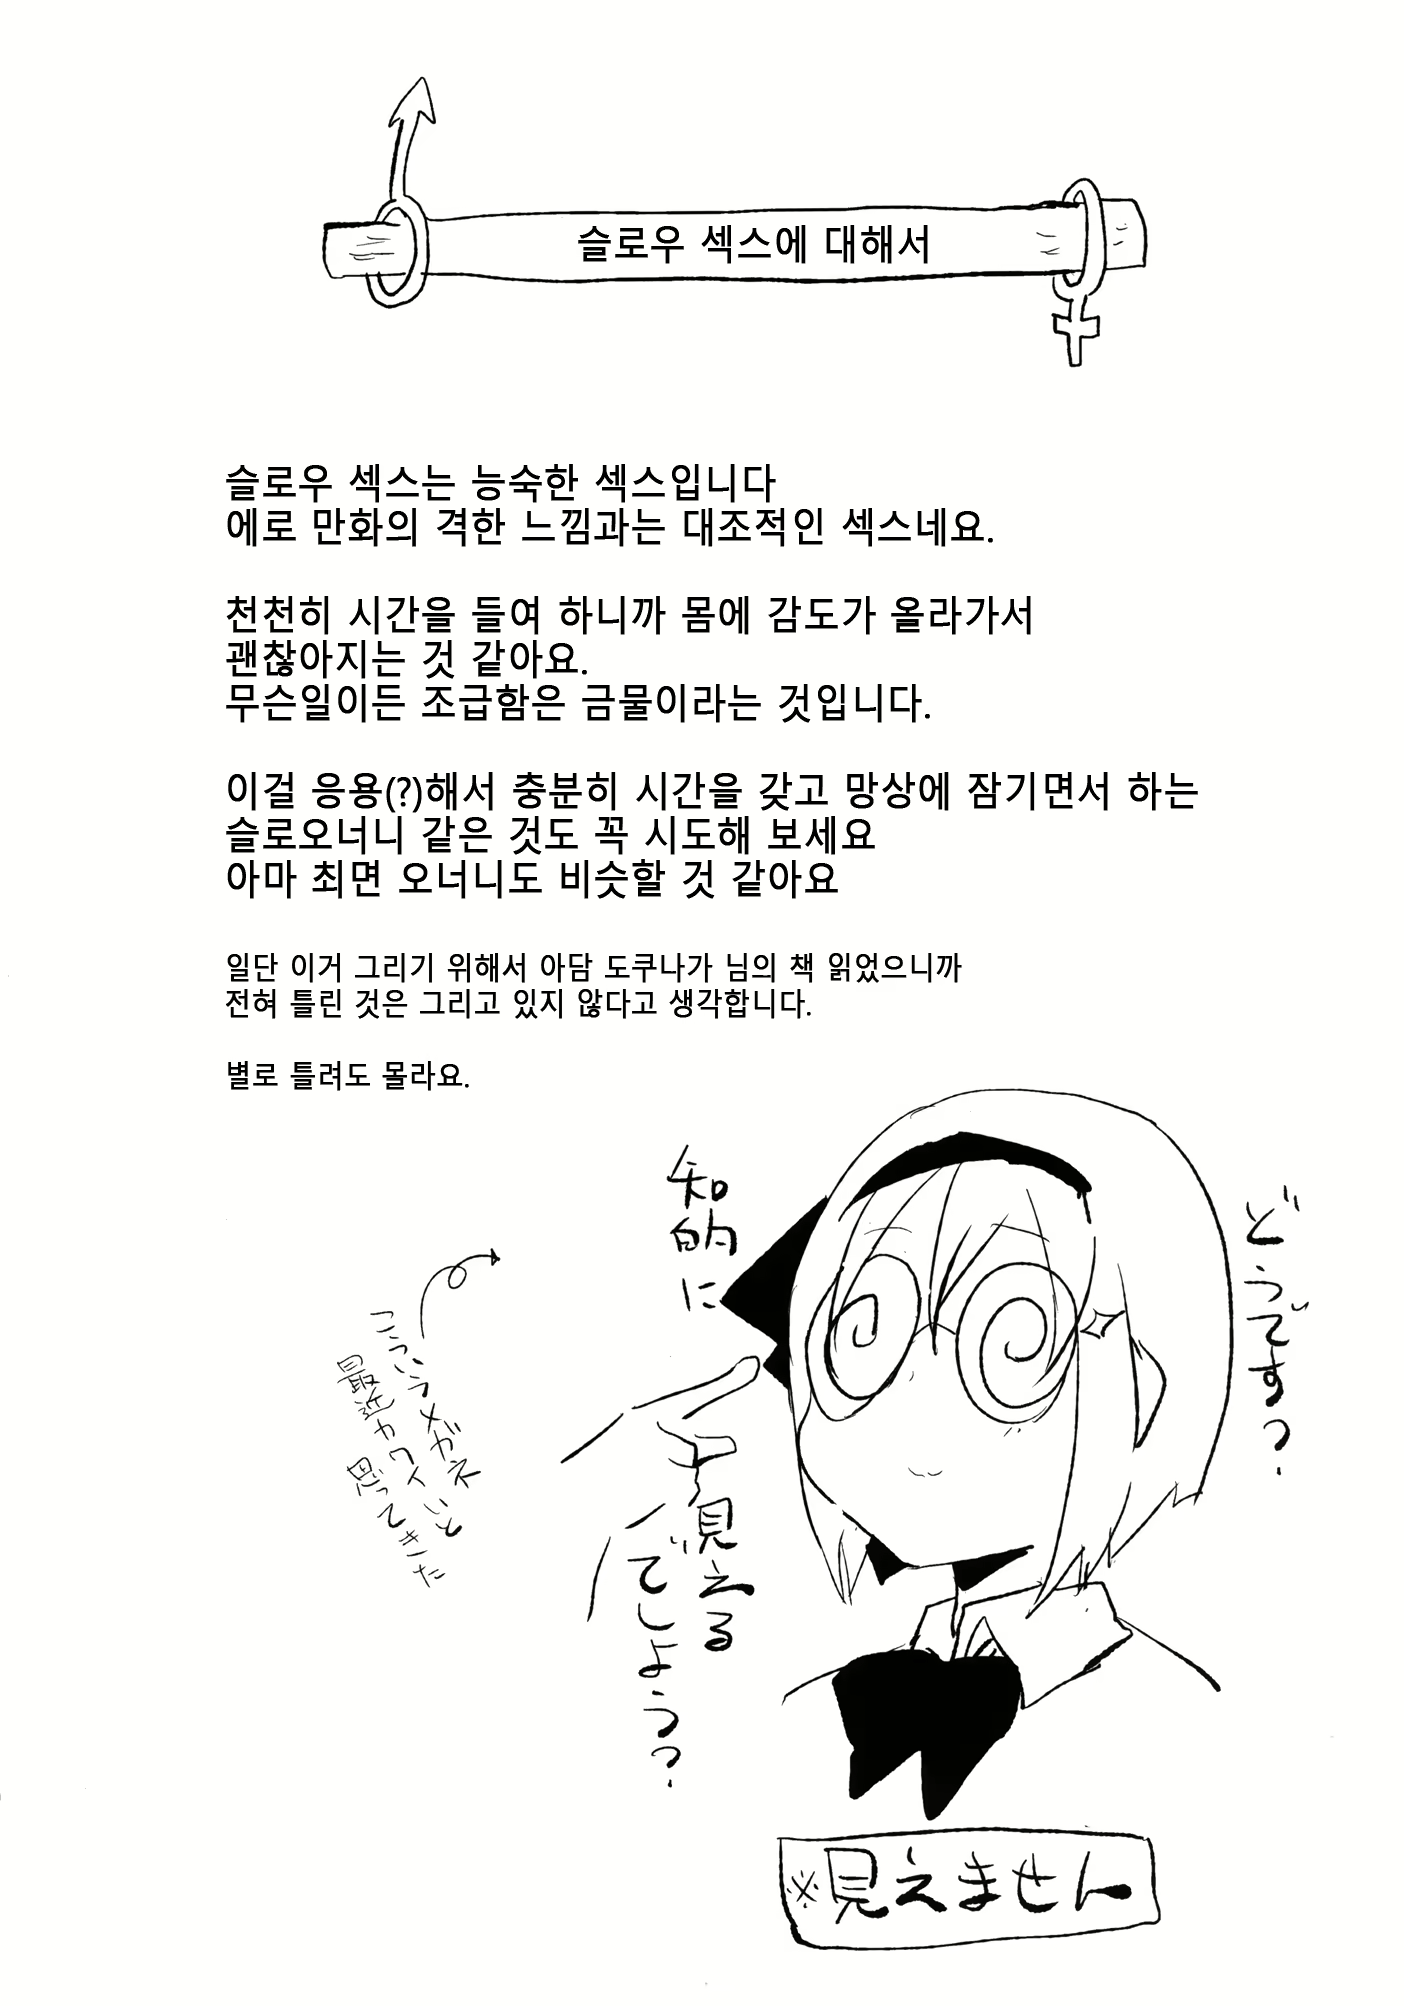 슬로우 섹스에 대해서
슬로우 섹스는 능숙한 섹스입니다
에로 만화의 격한 느낌과는 대조적인 섹스네요.
천천히 시간을 들여 하니까 몸에 감도가 올라가서
괜찮아지는 것 같아요.
무슨일이든 조급함은 금물이라는 것입니다.
이걸 응용(?)해서 충분히 시간을 갖고 망상에 잠기면서 하는
슬로오너니 같은 것도 꼭 시도해 보세요
아마 최면 오너니도 비슷할 것 같아요
일단 이거 그리기 위해서 아담 도쿠나가 님의 책 읽었으니까
전혀 틀린 것은 그리고 있지 않다고 생각합니다.
별로 틀려도 몰라요.
どうです?
知的に
見える
でしょう?
こういうメガネ
最近カワイいと
思ってきた
※見えません